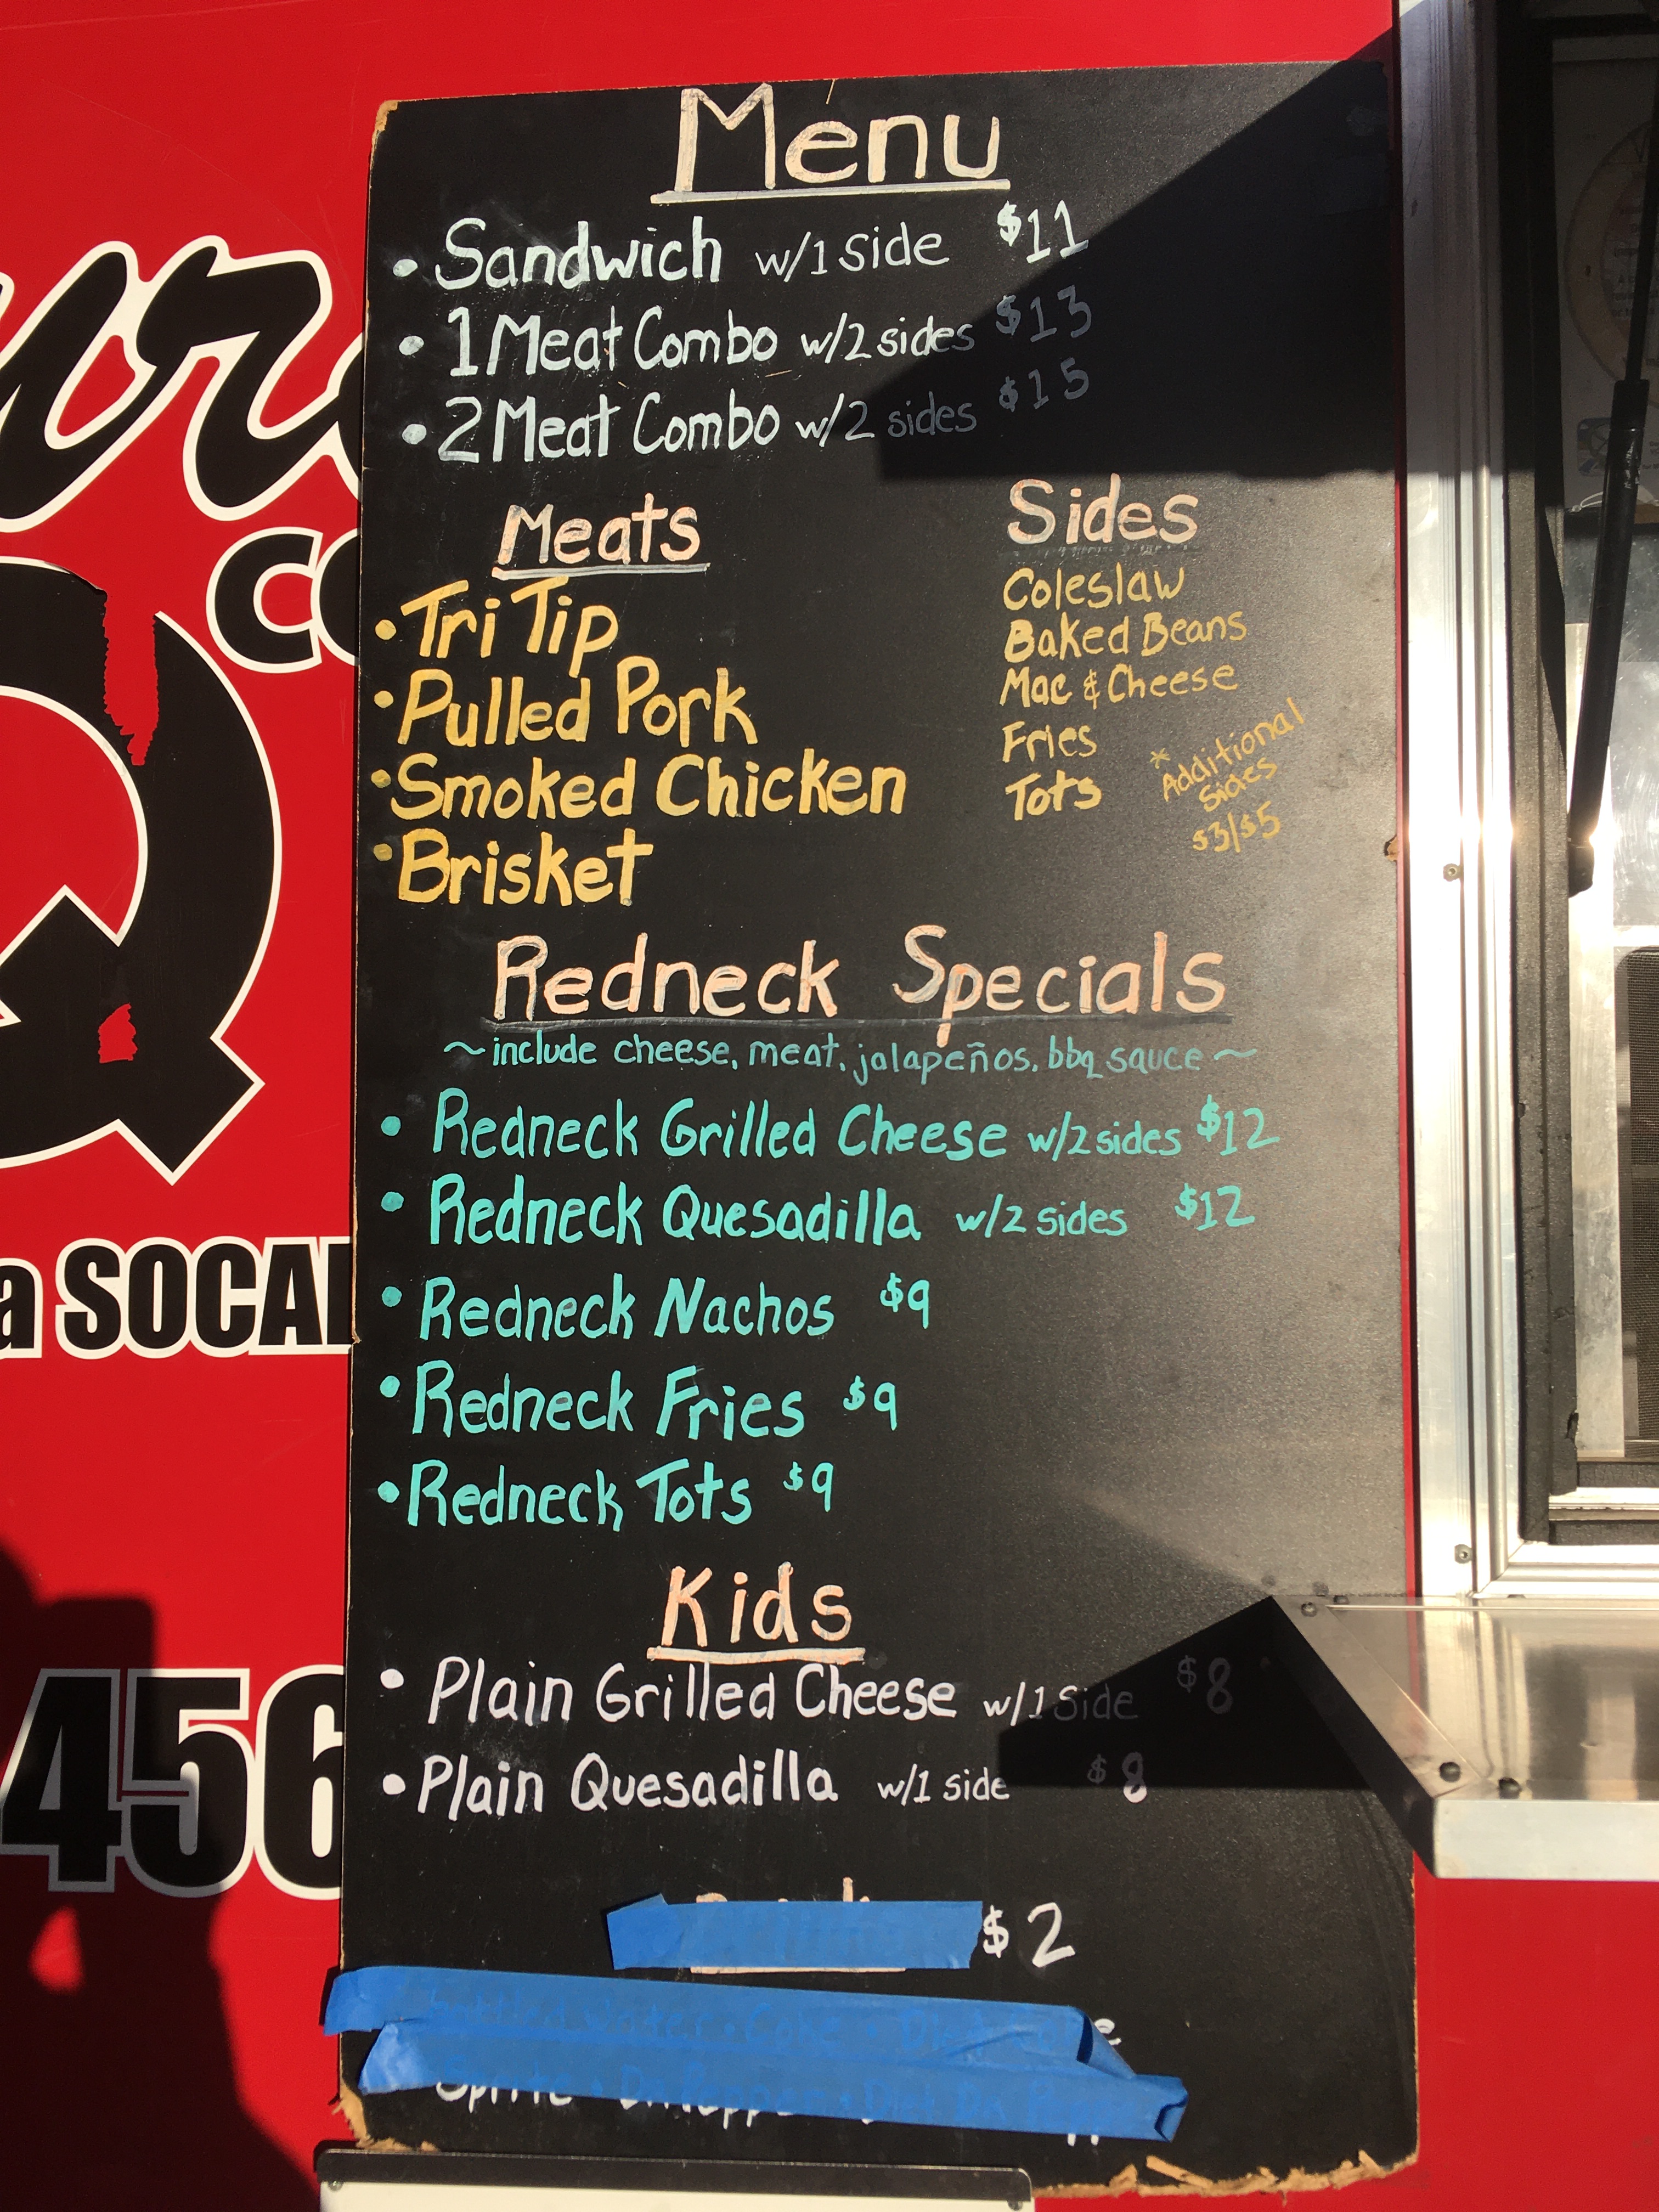 Menu
• Sandwich w/1 side $11
• 1 Meat Combo w/2 sides $13
• 2 Meat Combo w/2 sides $15
Meats
• Tri Tip
• Pulled Pork
• Smoked Chicken
• Brisket
Sides
Coleslaw
Baked Beans
Mac & Cheese
Fries
Tots
* Additional
Sides
$3/$5
Redneck Specials
~ include cheese, meat, jalapeños, bbq sauce ~
• Redneck Grilled Cheese w/2 sides $12
• Redneck Quesadilla w/2 sides $12
• Redneck Nachos $9
• Redneck Fries $9
• Redneck Tots $9
Kids
• Plain Grilled Cheese w/1 Side $8
• Plain Quesadilla w/1 side $8
$2
Sprite • Dr Pepper •
Q
a SOCAL
456